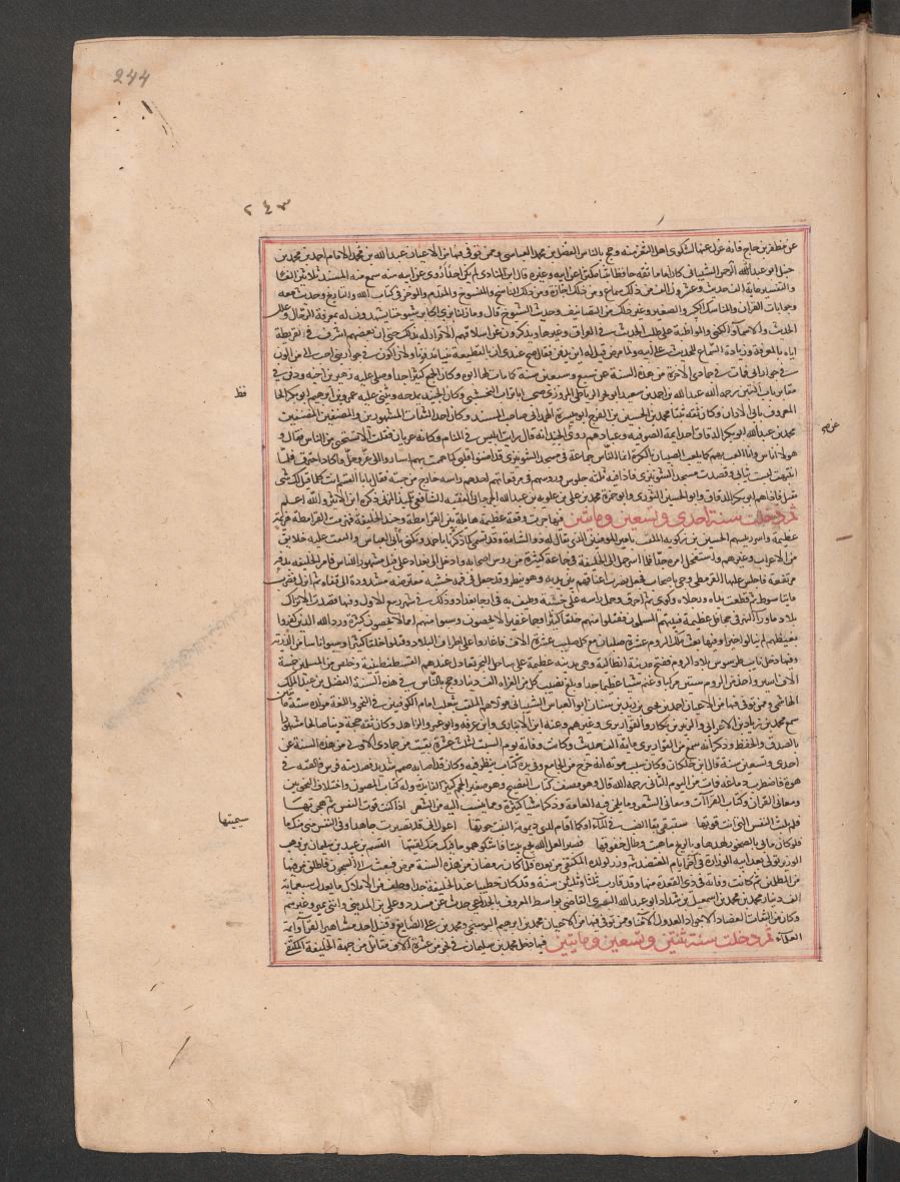 244
٢٤٣
عن مظفر بن حاج فانه عزل عنها لشكوى اهل الثغر منه وحج بالناس الفضل بن محمد العباسي وممن توفي فيها من الاعيان عبد الله بن محمد الامام احمد بن محمد بن
حنبل ابو عبد الرحمن الشيباني كان اماما ثقة حافظا ثبتا مكثرا عن ابيه وغيره قال ابن المنادي لم يكن احد اروى عن ابيه منه سمع منه المسند ثلاثين الفا
والتفسير مائة الف حديث وعشرون الف من ذلك سماع ومن ذلك اجازة ومن ذلك الناسخ والمنسوخ والمقدم والموخر في كتاب الله والتاريخ وحديث شعبة
وجوابات القران والمناسك الكبير والصغير وغير ذلك من التصانيف وحديث الشيوخ قال وما زلنا نرى اكابر شيوخنا يشهدون له بمعرفة الرجال وعلل
الحديث والاسماء والكنى والمواظبة على طلب الحديث في العراق وغيرها ويذكرون عن اسلافهم الاقرار له بذلك حتى ان بعضهم اسرف في تقريظه
اياه بالمعرفة وزيادة السماع للحديث على ابيه ولما مرض قيل له اين تدفن فقال صح عندي ان بالقطيعة نبيا مدفونا ولان اكون في جوار نبي احب الي من اكون
في جوار ابي فمات في جمادى الاخرة من هذه السنة عن سبع وسبعين سنة كما مات لها ابوه وكان الجمع كثيرا جدا وصلى عليه زهير بن اخيه ودفن في
مقابر باب التبن رحمه الله عبد الله بن احمد بن سعيد ابو بحر الرباطي المروزي صحب ابا تراب النخشبي وكان الجنيد يمدحه ويثني عليه عمر بن ابرهيم ابو بكر الحا
فظ
المعروف بابي الاذان وكان ثقة ثبتا محمد بن الحسين بن الفرج ابو ميسرة الهمداني صاحب المسند وكان احد الثقات المشهورين والمصنفين المنصفين
محمد بن عبد الله ابو بكر الدقاق احد ائمة الصوفية وعبادهم روى الجنيد انه قال رايت ابليس في المنام وكانه عريان فقلت الا تستحي من الناس فقال و
هولا ناس وانا العب بهم كما يلعب الصبيان بالكرة انما الناس جماعة في مسجد الشونيزي قد اضنوا قلبي كلما هممت بهم اشاروا الى الله عز وجل واكاد احترق فلما
انتبهت لبست ثيابي وقصدت مسجد الشونيزي فاذا فيه ثلثه جلوس وروسهم في مرقعاتهم احدهم راسه خارج من جبته فقال يا ابا القسم انت كلما قيل لك شي
تقبل فاذاهم ابو بكر الدقاق وابو الحسين النوري وابو حمزة محمد بن علي بن علويه بن عبد الله الجرجاني الفقيه الشافعي تلميذ المزني ذكره ابن الاثير والله اعلم
ثم دخلت سنة احدى وتسعين ومايتين فيها جرت وقعة عظيمة هائلة بين القرامطة وجند الخليفة فهزمت القرامطة هزيمة
عظيمة واسر رئيسهم الحسين بن زكرويه الملقب بامير المومنين الذي يقال له ذو الشامة وقد تسمى كما ذكرنا باحمد وتكنى بابي العباس والتفت عليه خلايق
من الاعراب وغيرهم واستفحل امره جدا فلما اسر حمل الى الخليفة في جماعة كثيرة من روس اصحابه وادخل الى بغداد على فيل مشهور للناس فامر الخليفة بدفه
مرتفعة فاجلس عليها القرمطي وجي باصحابه فجعل يضرب اعناقهم بين يديه وهو ينظر وقد جعل في فمه خشبه معترضه مشدودة الى قفاه ثم انزل فضرب
مايتا سوط ثم قطعت يداه ورجلاه وكوي ثم احرق وحمل راسه على خشبة وطيف به في ارجا بغداد وذلك في شهر ربيع الاول وفيها قصدت الاتراك
بلاد ما وراء النهر في جحافل عظيمة فبيتهم المسلمون فقتلوا منهم خلقا كثيرا وجما غفيرا لا يحصون وسبوا منهم امما لا يحصون كثرة ورد الله الذين كفروا
بغيظهم لم ينالوا خيرا وفيها بعث ملك الروم عشرة صلبان مع كل صليب عشرة الاف فاغاروا على اطراف البلاد وقتلوا خلقا كثيرا وسبوا ناسا من الذرية
وفيها دخل نايب طرسوس بلاد الروم ففتح مدينة انطالية وهي مدينه عظيمة على ساحل البحر تعادل عندهم القسطنطينية وخلص من المسلمين خمسة
الاف اسير واخذ من الروم ستين مركبا وغنم شيئا عظيما جدا وبلغ نصيب كل من الغزاة الف دينار وحج بالناس في هذه السنة الفضل بن عبد الملك
الهاشمي وممن توفي فيها من الاعيان احمد بن يحيى بن زيد بن سنان ابو العباس الشيباني مولاهم الملقب ثعلب امام الكوفيين في النحو واللغة مولده سنة مايتين
سمع محمد بن زياد بن الاعرابي والزبير بن بكار والقواريري وغيرهم وعنه ابن الانباري وابن عرفه وابو عمر الزاهد وكان ثقة حجة دينا صالحا مشهورا
بالصدق والحفظ وذكر انه سمع من القواريري ماية الف حديث وكانت وفاته يوم السبت لثلث عشرة بقيت من جمادى الاولى من هذه السنة عن
احدى وتسعين سنة قال ابن خلكان وكان سبب موته انه خرج من الجامع وفي يده كتاب ينظر فيه وكان قد اصابه صمم شديد فصدمته فرس فالقته في
هوة فاضطرب دماغه فمات من اليوم الثاني رحمه الله قال وهو مصنف كتاب الفصيح وهو صغير الحجم كثير الفايدة وله كتاب المصون واختلاف النحويين
ومعاني القران وكتاب القراآت ومعاني الشعر وما يلحن فيه العامة وذكر اشيا كثيرة ومما ينسب اليه من الشعر اذا كنت قوت النفس ثم هجرتها
فلم تلبث النفس التي انت قوتها ستبقى بقاء الضب في الماء او كما اقام لدى ديمومة النبت حوتها اغرك اني قد تصبرت جاهدا وفي النفس مني منك ما
سيميتها
فلو كان ما بي بالصخور لهدها وبالريح ما هبت وطال خفوتها فصبرا لعل الله يجمع بيننا فاشكو هموما فيك منك لقيتها القسم بن عبيد بن سليمان بن وهب
الوزير تولى بعد ابيه الوزارة في اخر ايام المعتضد ثم وزر لولده المكتفي من بعده فلما كان رمضان من هذه السنة مرض فبعث الى السجون فاطلق من فيها
من المطلبين ثم كانت وفاته في ذي القعدة منها وقد قارب ثلثا وثلثين سنة وقد كان حظيا عند الخليفة جدا وخلف من الاملاك ما يعدل سبعماية
الف دينار محمد بن محمد بن اسمعيل بن شداد ابو عبد الله البصري القاضي بواسط المعروف بالجذوعي حدث عن مسدد وعلي بن المديني وابن نمير وغيرهم
وكان من الثقات القضاة الاجواد العدول الامنا وممن توفي فيها من الاعيان محمد بن ابرهيم البوشنجي ومحمد بن علي الصايغ وقنبل احد مشاهير القراء وائمة
العلماء ثم دخلت سنة ثنتين وتسعين ومايتين فيها دخل محمد بن سليمان في نحو من عشرة الاف مقاتل من جهة الخليفة المكتفي